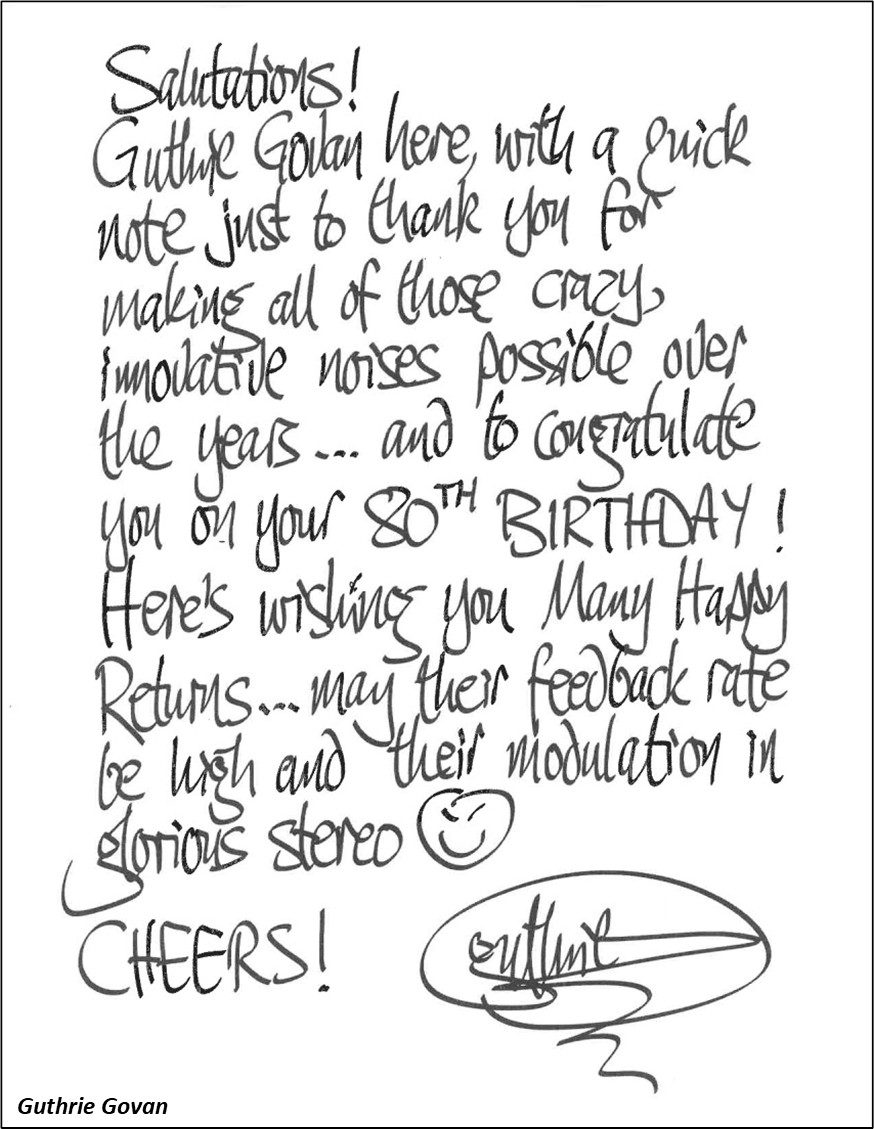 Salutations!
Guthrie Govan here, with a quick
note just to thank you for
making all of those crazy,
innovative noises possible over
the years... and to congratulate
you on your 80TH BIRTHDAY!
Here's wishing you Many Happy
Returns... may their feedback rate
be high and their modulation in
glorious stereo
CHEERS!
guthrie
Guthrie Govan